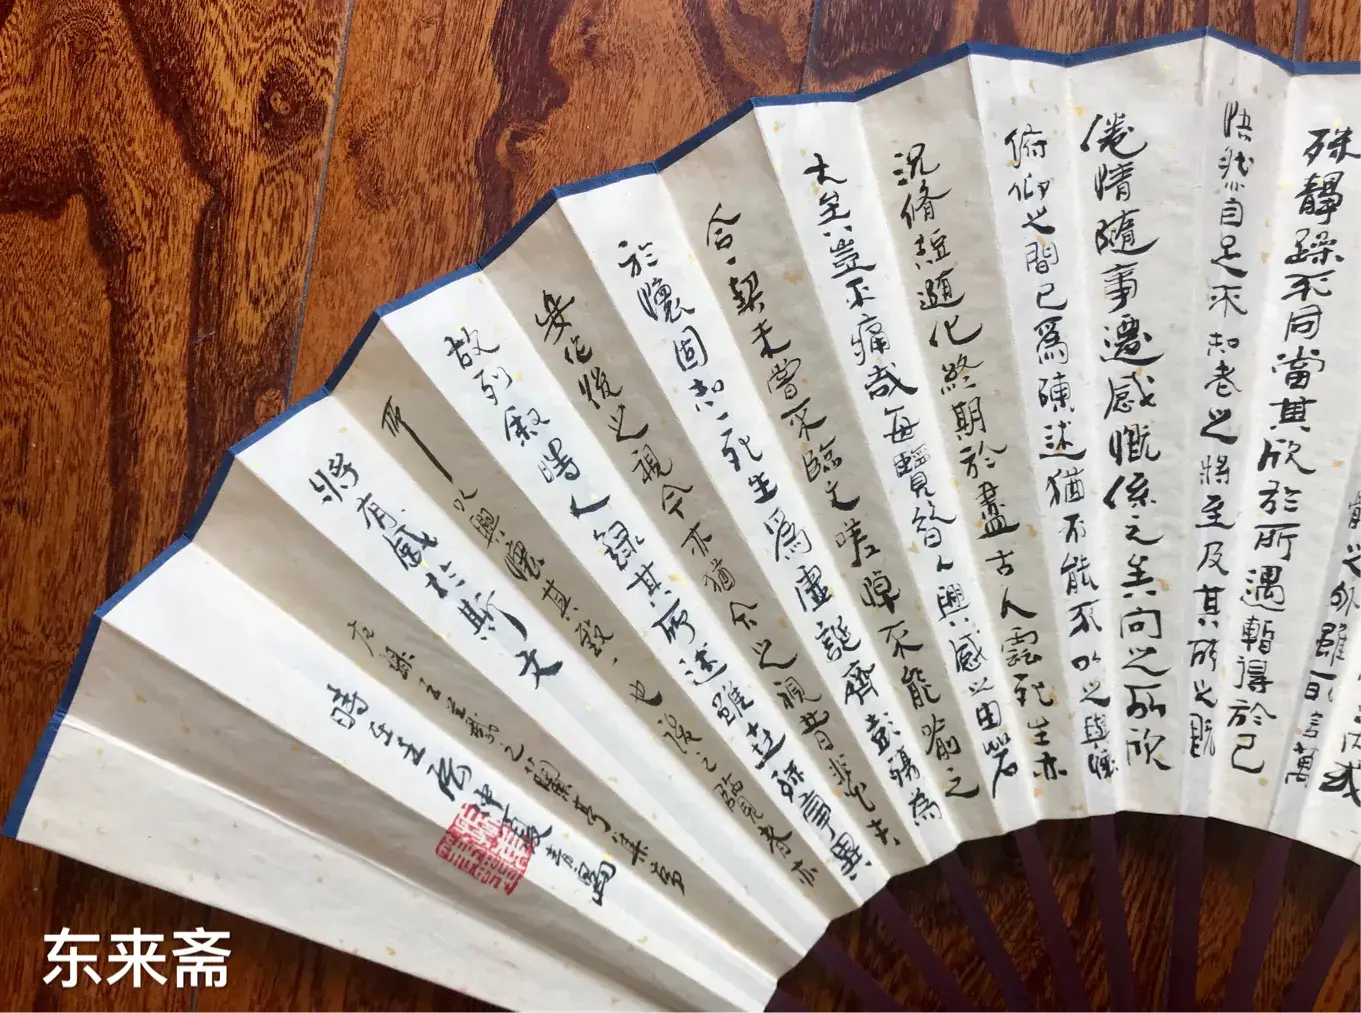 或
之外雖
萬
殊靜躁不同當其欣於所遇暫得於己
怏然自足不知老之將至及其所之既
倦情隨事遷感慨係之矣向之所欣
俯仰之間已為陳迹猶不能不以之興懷
況脩短隨化終期於盡古人雲死生亦
大矣豈不痛哉每覽昔人興感之由若
合一契未嘗不臨文嗟悼不能喻之
於懷固知一死生為虛誕齊彭殤為
妄作後之視今亦猶今之視昔悲夫
故列敘時人錄其所述雖世殊事異
所以興懷其致一也後之臨覽者亦
將有感於斯文
右錄王羲之蘭亭集序
時在壬辰中夏
东来斋